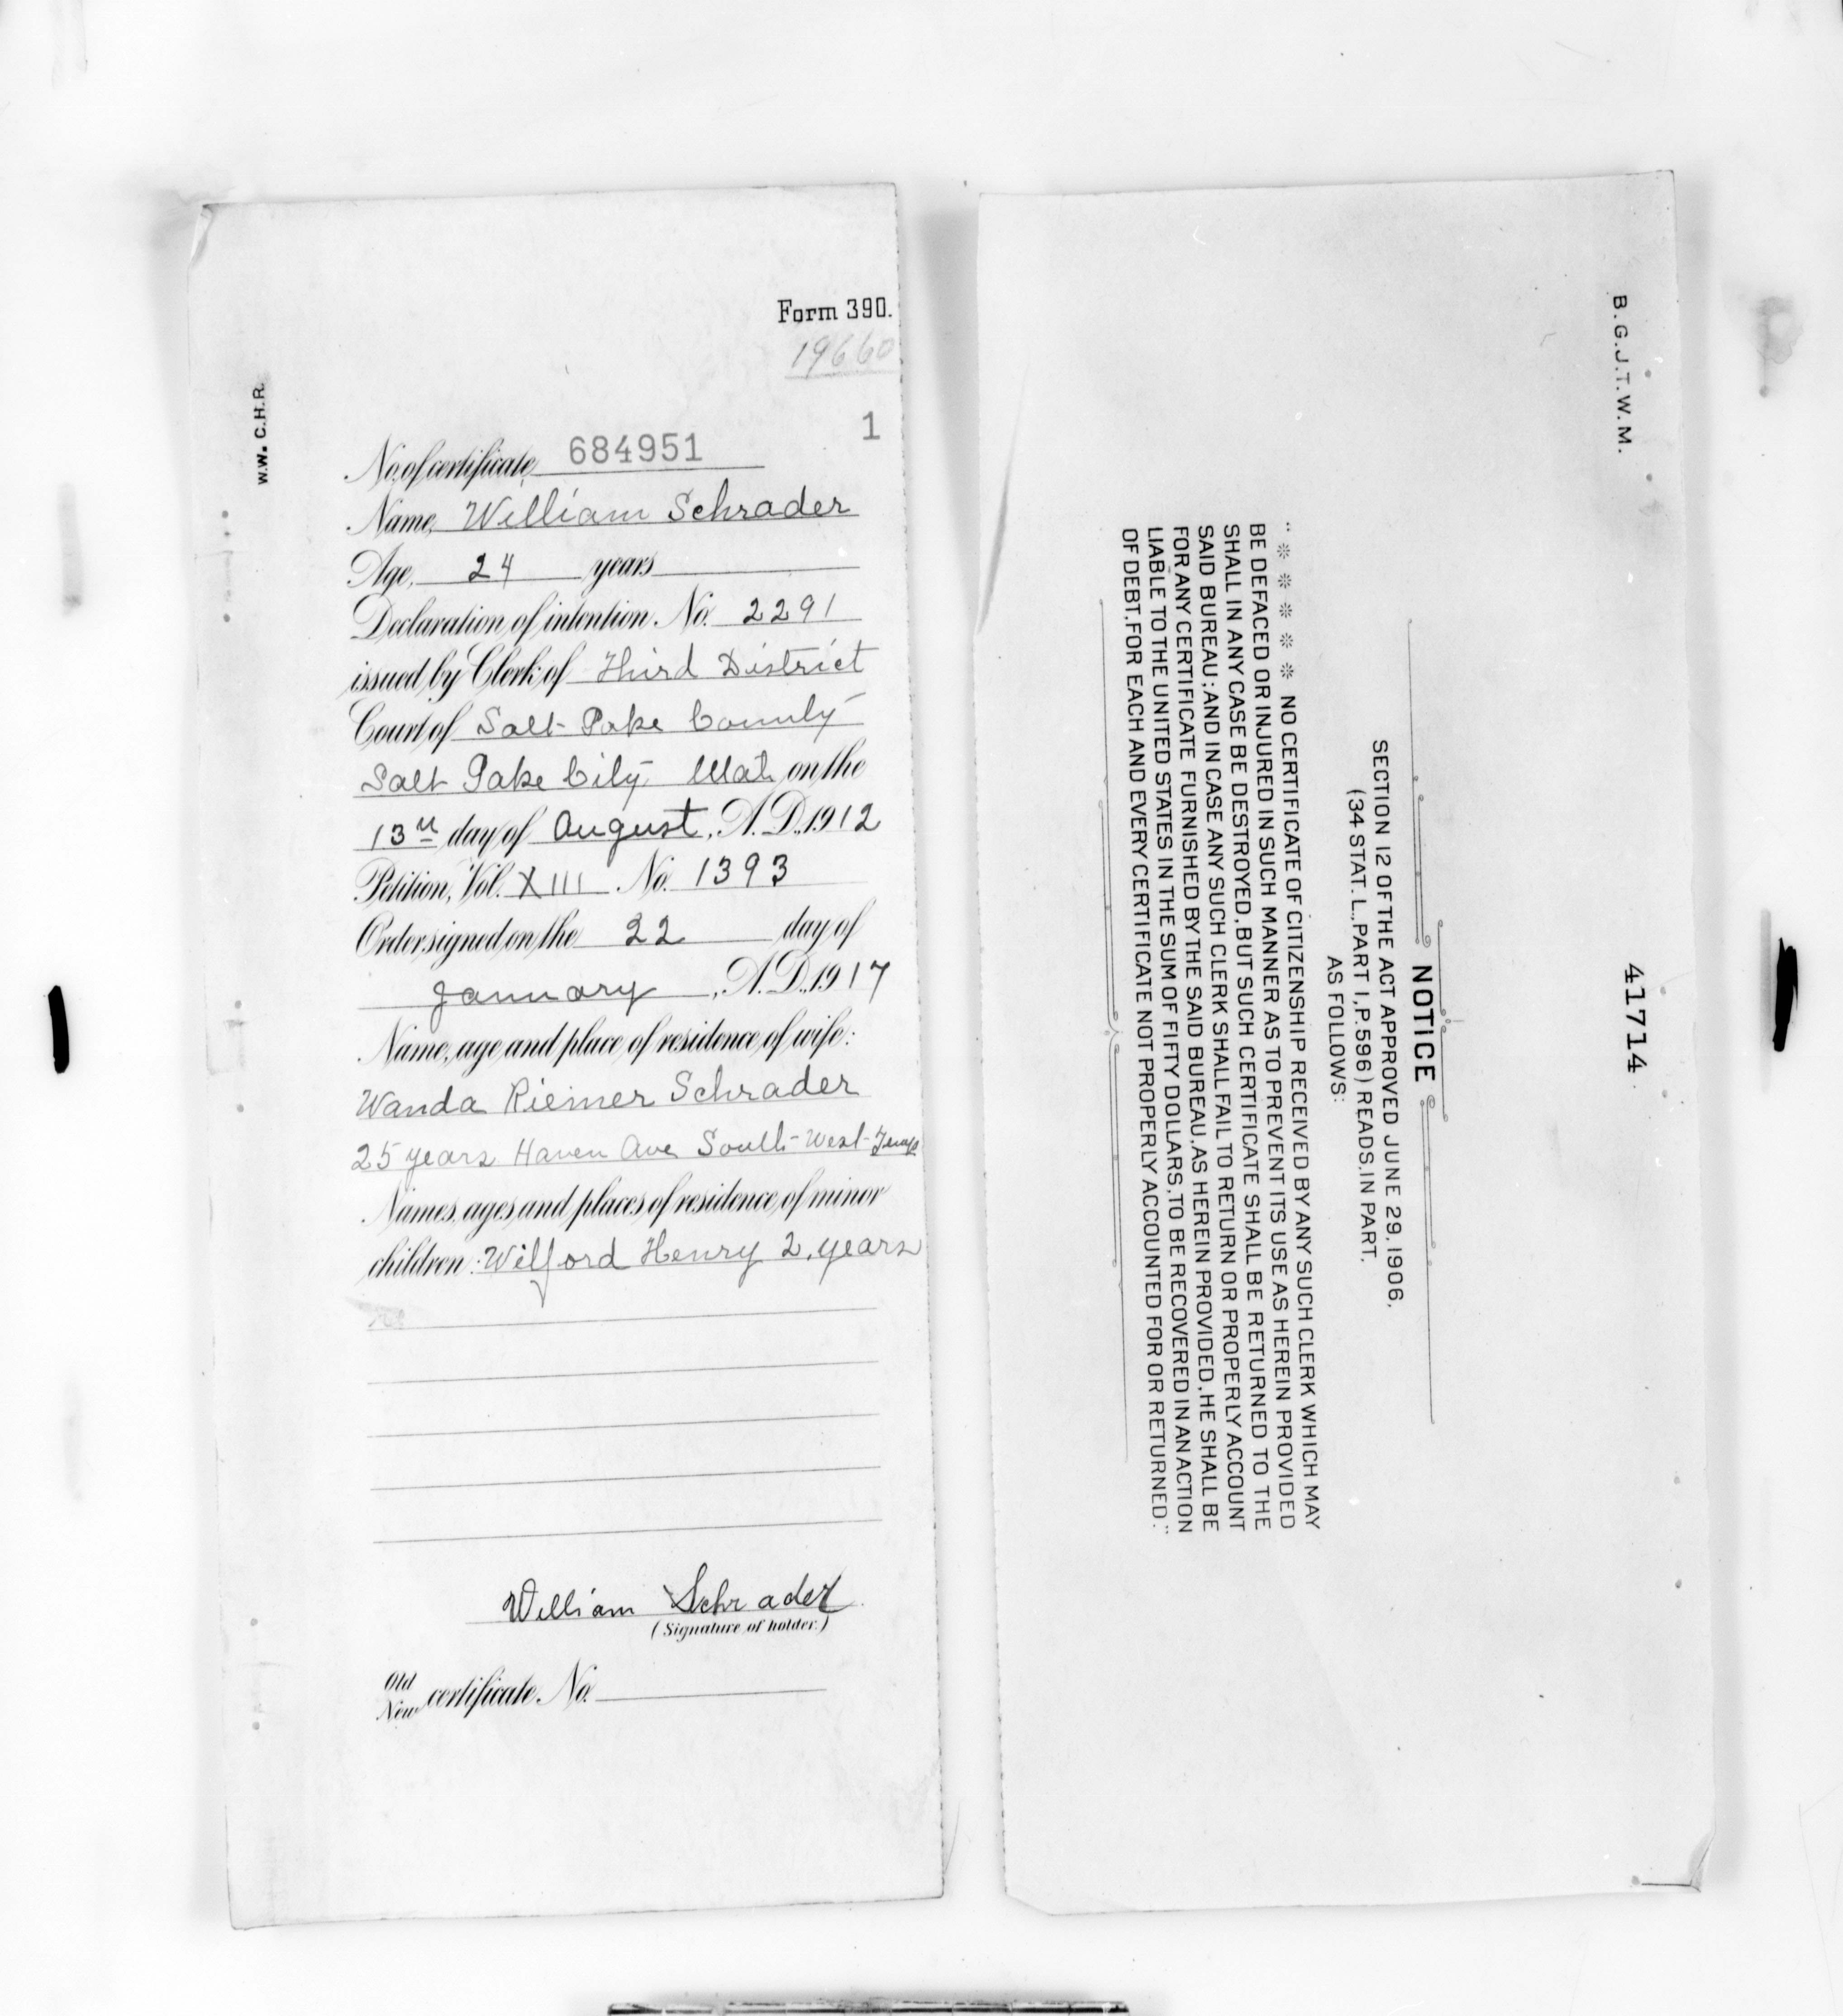 Form 390.
19660
1
W.W. C.H.R.
No. of certificate, 684951
Name, William Schrader
Age, 24 years
Declaration of intention, No. 2291
issued by Clerk of Third District
Court of Salt Lake County
Salt Lake City Utah on the
13th day of August, A.D., 1912
Petition, Vol. XIII No. 1393
Order signed on the 22 day of
January, A.D., 1917
Name, age and place of residence of wife:
Wanda Riemer Schrader
25 years Haven Ave South-West-Temp
Names, ages and places of residence of minor
children: Wilford Henry 2, years
William Schrader
(Signature of holder.)
Old
New certificate No.
B.G.J.T.W.M.
41714
NOTICE
SECTION 12 OF THE ACT APPROVED JUNE 29, 1906,
(34 STAT. L., PART 1, P. 596) READS, IN PART,
AS FOLLOWS:
" * * * * * NO CERTIFICATE OF CITIZENSHIP RECEIVED BY ANY SUCH CLERK WHICH MAY
BE DEFACED OR INJURED IN SUCH MANNER AS TO PREVENT ITS USE AS HEREIN PROVIDED
SHALL IN ANY CASE BE DESTROYED, BUT SUCH CERTIFICATE SHALL BE RETURNED TO THE
SAID BUREAU; AND IN CASE ANY SUCH CLERK SHALL FAIL TO RETURN OR PROPERLY ACCOUNT
FOR ANY CERTIFICATE FURNISHED BY THE SAID BUREAU, AS HEREIN PROVIDED, HE SHALL BE
LIABLE TO THE UNITED STATES IN THE SUM OF FIFTY DOLLARS, TO BE RECOVERED IN AN ACTION
OF DEBT, FOR EACH AND EVERY CERTIFICATE NOT PROPERLY ACCOUNTED FOR OR RETURNED."